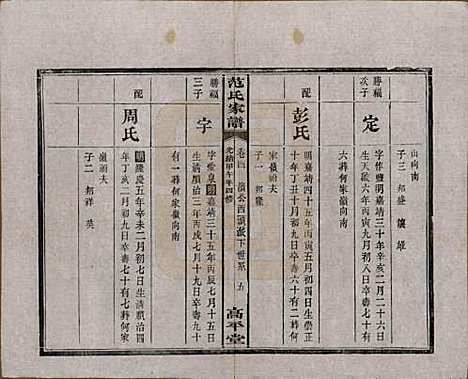 山向南
子三 邦盛 濱 緑
勝福次子
定
字體鹽明嘉靖三十年辛亥二月二十六日
生天啟六年丙寅九月初八日卒壽七十
六葬何家嶺向南
配
彭氏
明嘉靖四十五年丙寅五月初四日生崇正
十年丁丑十月初九日卒壽七十有二葬何
家嶺祔夫
子一 邦慶
范氏家譜
卷四 濆公西頭派下世系 五
光緒甲午年四修
高平堂
勝福三子
字
字世良明嘉靖三十五年丙辰七月十五日
生清順治三年丙戌七月初八日卒壽九十
有一葬何家嶺向南
配
周氏
明隆慶五年辛未二月初七日生清順治四
年丁亥二月初九日卒壽七十有七葬何家
嶺祔夫
子二 邦祥 英